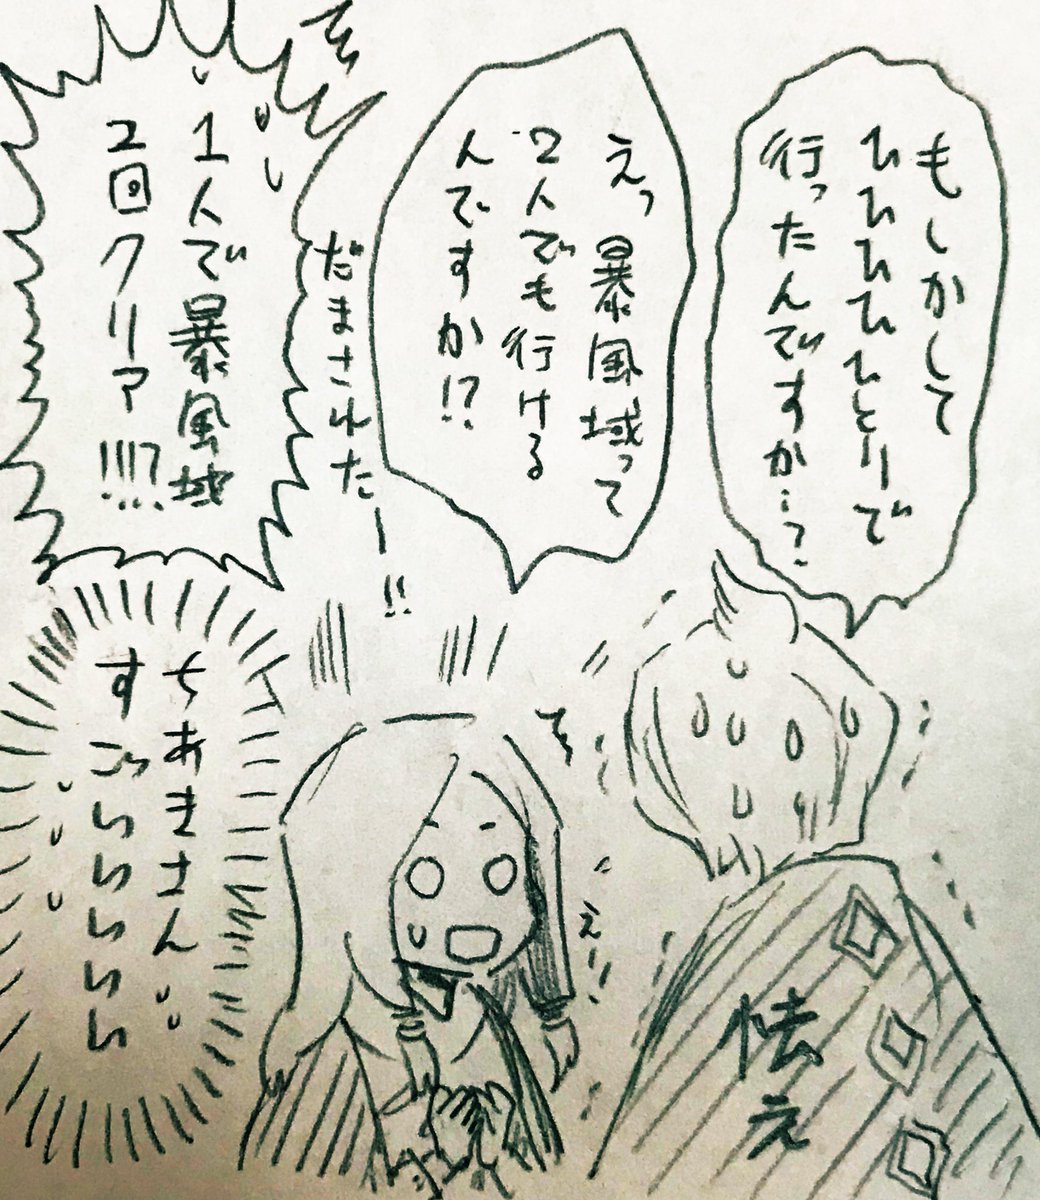 もしかして
ひひひひひとりで
行ったんですか…?
えっ 暴風域って
2人でも行ける
んですか!?
だまされたー!!
1人で暴風域
2回クリア!!!?
ちあきさん
すごいいいいい
えー!!
怯え